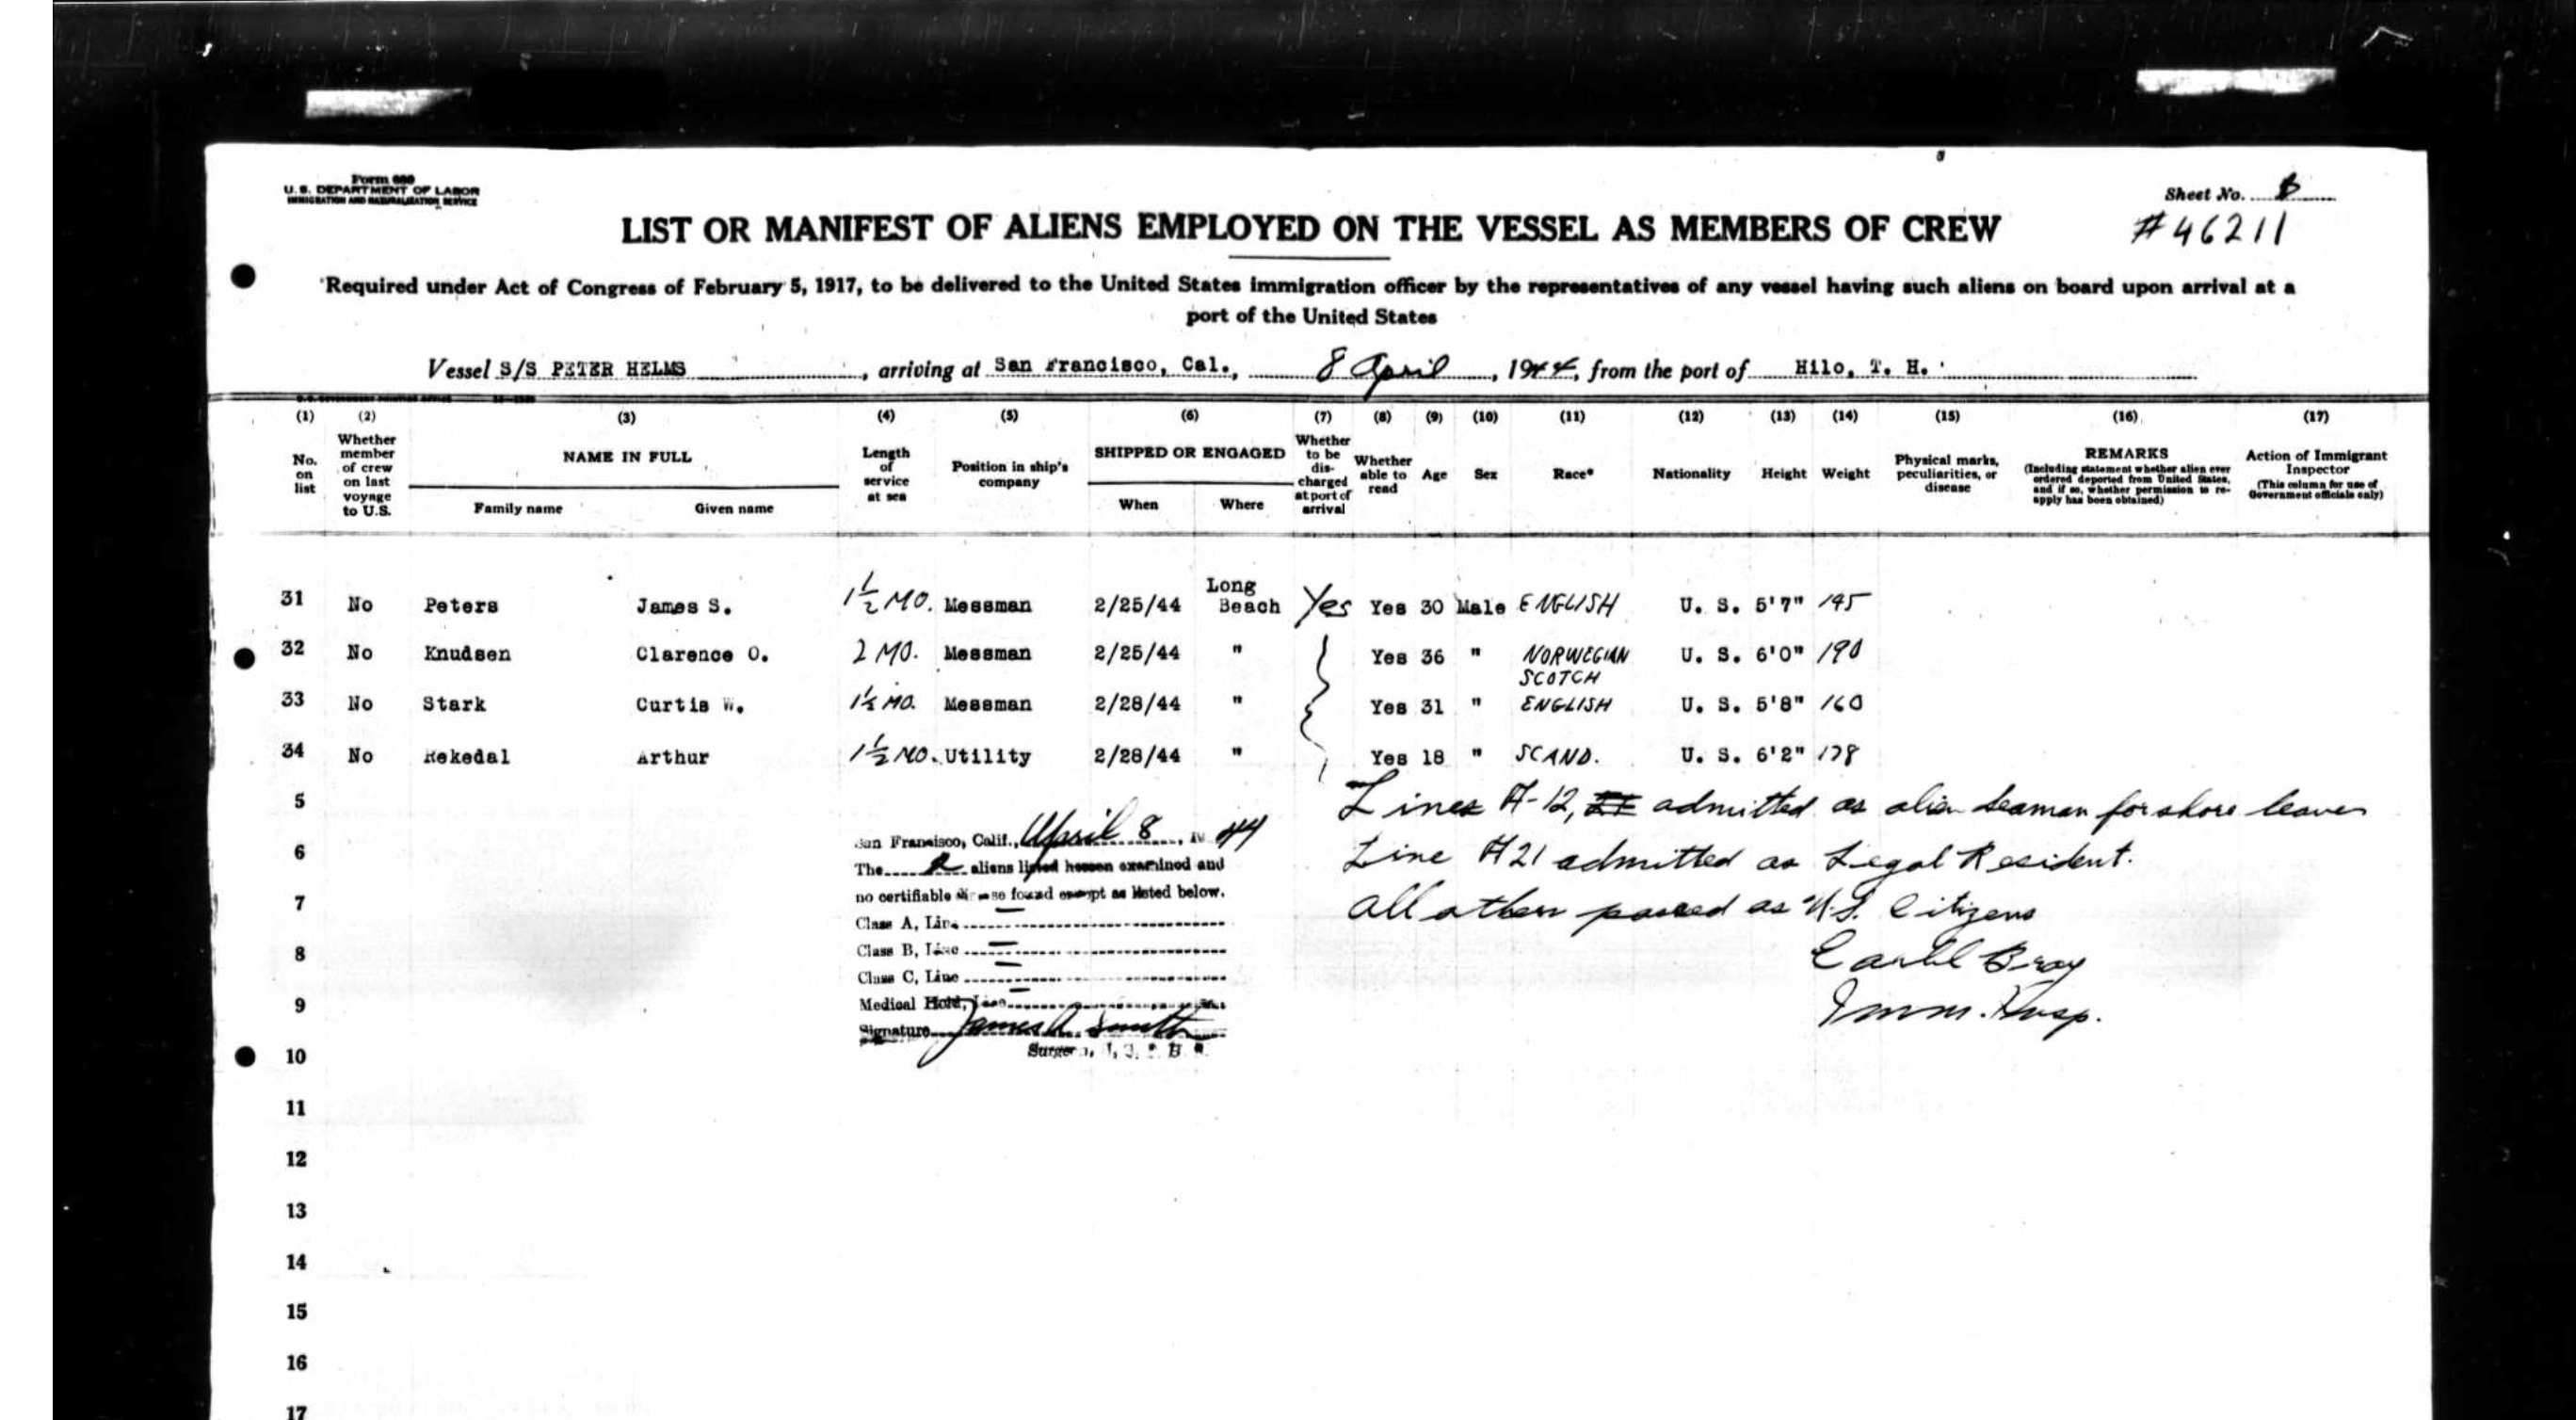 Form 680
U. S. DEPARTMENT OF LABOR
IMMIGRATION AND NATURALIZATION SERVICE
Sheet No.
#46211
LIST OR MANIFEST OF ALIENS EMPLOYED ON THE VESSEL AS MEMBERS OF CREW
Required under Act of Congress of February 5, 1917, to be delivered to the United States immigration officer by the representatives of any vessel having such aliens on board upon arrival at a
port of the United States
Vessel S/S PETER HELMS, arriving at San Francisco, Cal., 8 April, 1944, from the port of Hilo, T. H.
(1) (2) (3) (4) (5) (6) (7) (8) (9) (10) (11) (12) (13) (14) (15) (16) (17)
No. on list
Whether member of crew on last voyage to U.S.
NAME IN FULL
Family name Given name
Length of service at sea
Position in ship's company
SHIPPED OR ENGAGED
When Where
Whether to be discharged at port of arrival
Whether able to read
Age
Sex
Race*
Nationality
Height
Weight
Physical marks, peculiarities, or disease
REMARKS
(Including statement whether alien ever ordered deported from United States, and if so, whether permission to re-apply has been obtained)
Action of Immigrant Inspector
(This column for use of Government officials only)
31 No Peters James S. 1½ MO. Messman 2/25/44 Long Beach Yes Yes 30 Male ENGLISH U. S. 5'7" 195
32 No Knudsen Clarence O. 2 MO. Messman 2/25/44 " Yes 36 " NORWEGIAN U. S. 6'0" 190
33 No Stark Curtis W. 1½ MO. Messman 2/28/44 " Yes 31 " SCOTCH ENGLISH U. S. 5'8" 160
34 No Rekedal Arthur 1½ MO. Utility 2/28/44 " Yes 18 " SCAND. U. S. 6'2" 178
5
Line #-12, admitted as alien seaman for shore leave
San Francisco, Calif., April 8, 1944
6
Line #21 admitted as Legal Resident.
The 2 aliens listed hereon examined and
no certifiable disease found except as listed below.
7
All others passed as U.S. Citizens
Class A, Line
8
Class B, Line
Class C, Line
9
Imm. Insp.
Medical Hold, Line
Signature James A. Smith
10
Surgeon, U. S. P. H.
11
12
13
14
15
16
17